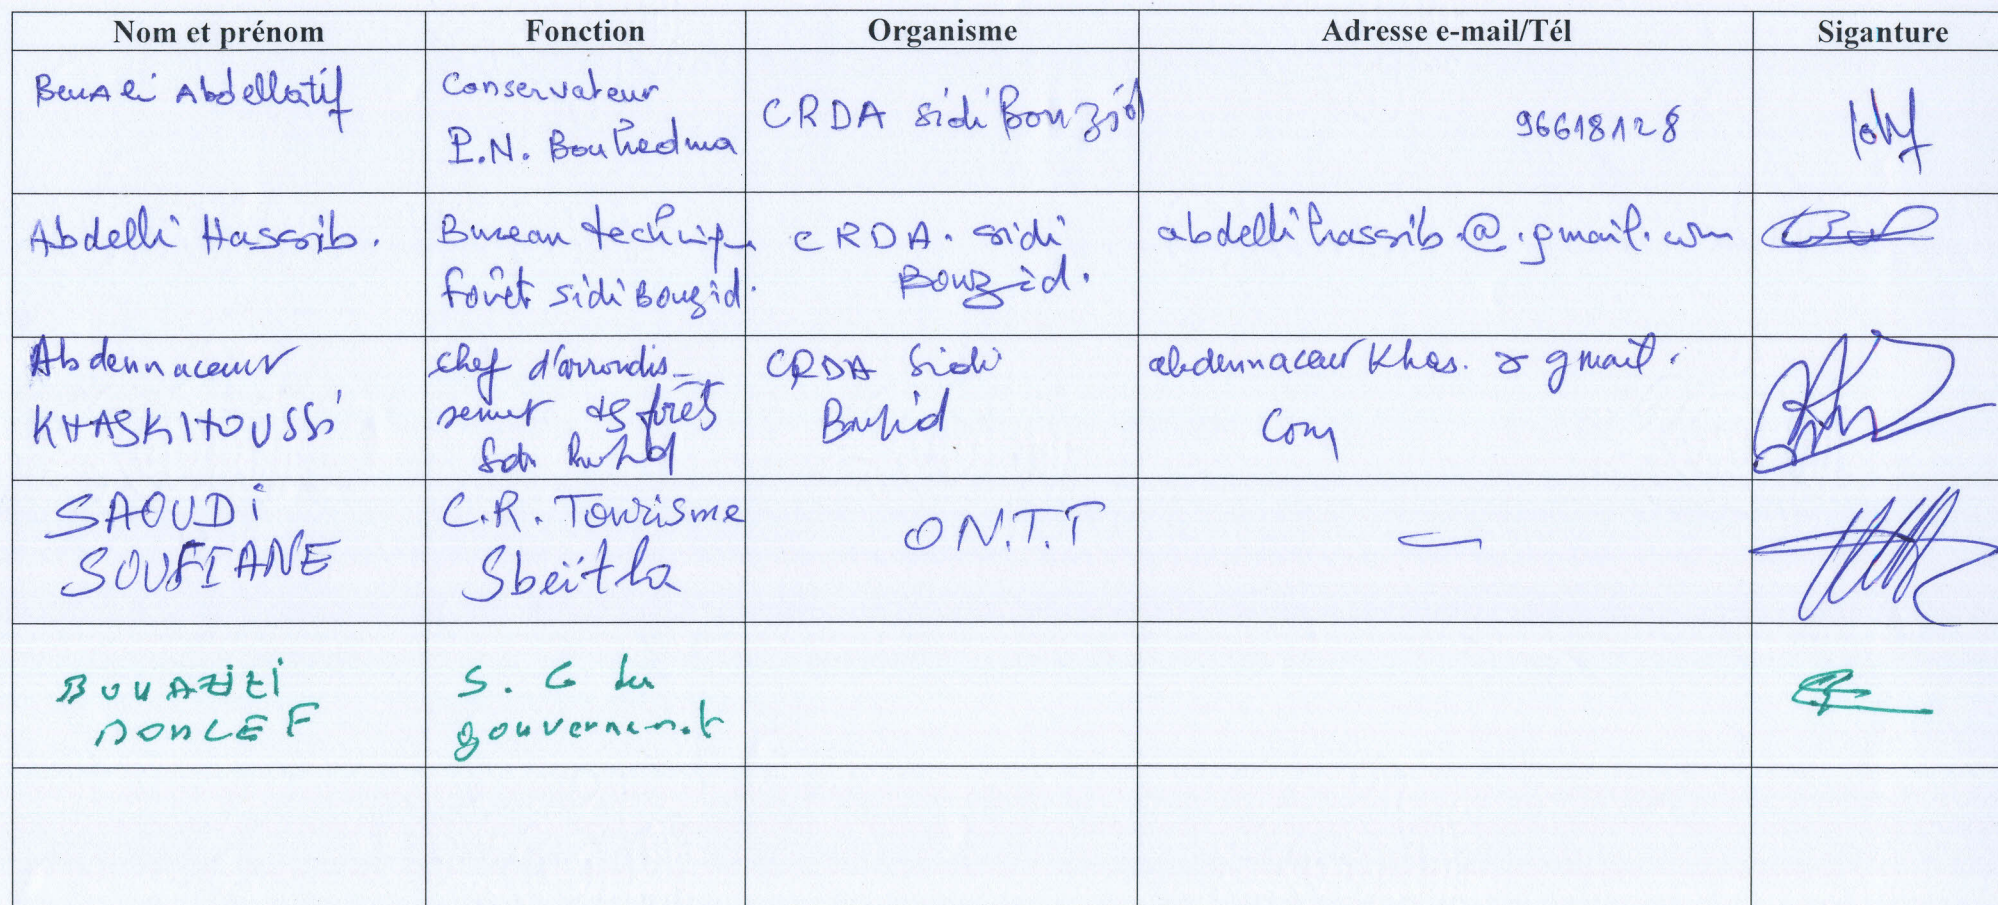 Nom et prénom Fonction Organisme Adresse e-mail/Tél Siganture
BenAli Abdellatif
Conservateur
P.N. Bouhedma
CRDA sidi Bouzid
96618128
Abdelli Hassib.
Bureau technique
forêt sidi Bouzid.
CRDA. sidi
Bouzid.
abdellihassib.@.gmail.com
Abdennaceur
KHASKHOUSSI
chef d'arrondis-
sement des forêts
CRDA Sidi
Bouzid
abdennaceur Khas. @ gmail.
Com
SAOUDI
SOUFIANE
C.R. Tourisme
Sbeïtla
O.N.T.T
BOUAZIZI
MONCEF
S. G du
gouvernement